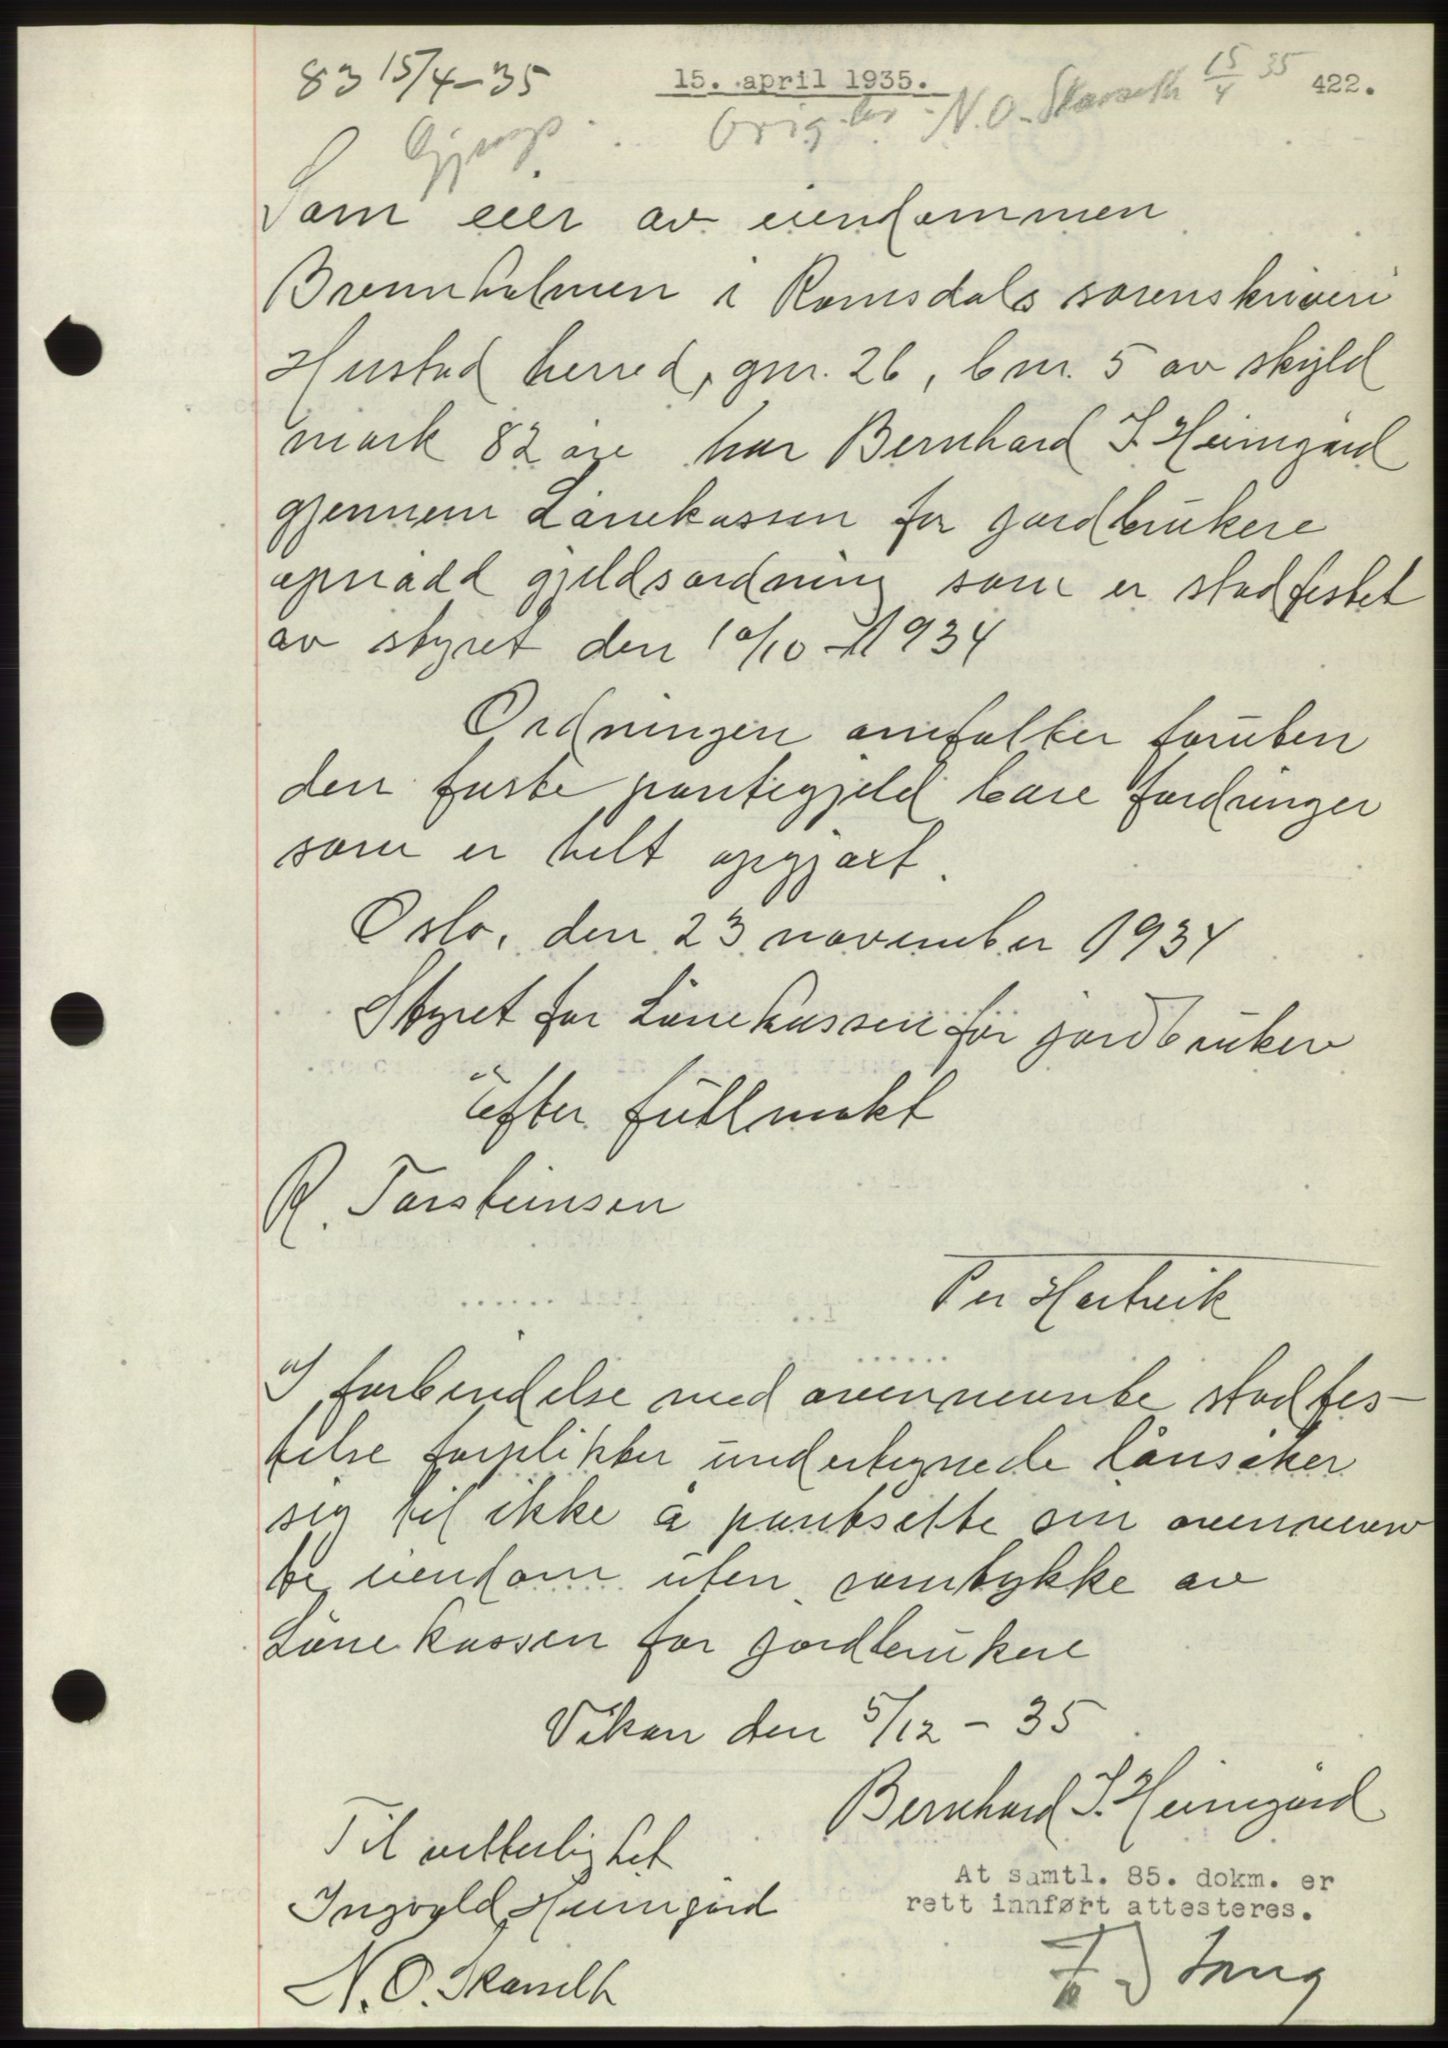 83 15/4-35
15. april 1935.
422.
Orig. N. O. Skarseth 15/4 35
Som eier av eiendommen
Brennholmen i Romsdals sorenskriveri
Hustad herred, gnr. 26, bnr. 5 av skyld
mark 82 øre har Bernhard I. Heimgård
gjennem Lånekassen for jordbrukere
opnådd gjeldsordning som er stadfestet
av styret den 10/10 - 1934
Ordningen omfatter foruten
den faste pantegjeld bare fordringer
som er helt opgjort.
Oslo, den 23 november 1934
Styret for Lånekassen for jordbrukere
Efter fullmakt
R. Torsteinsen
Per Hartvik
I forbindelse med ovennevnte stadfes-
telse forplikter undertegnede lånsøker
sig til ikke å pantsette sin ovennevn
te eiendom uten samtykke av
Lånekassen for jordbrukere
Vikan den 5/12 - 35
Bernhard I. Heimgård
Til vitterlighet
Ingvald Heimgård
N. O. Skarseth
At samtl. 85. dokm. er
rett innført attesteres.